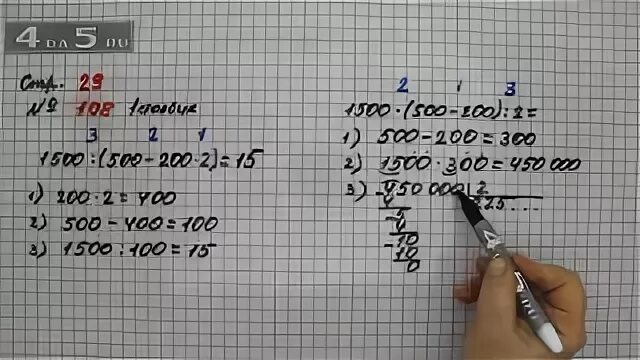 4 DA 5 DU
Стр. 29
№ 108 1 столбик
3 2 1
1500 : (500 - 200 · 2) = 15
1) 200 · 2 = 400
2) 500 - 400 = 100
3) 1500 : 100 = 15
2 1 3
1500 · (500 - 200) : 2 =
1) 500 - 200 = 300
2) 1500 · 300 = 450 000
3) 450 000 | 2
4 225...
5
4
10
10
0